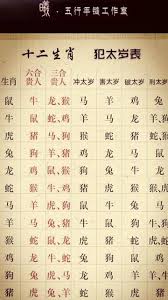 曦·五行手链工作室
十二生肖 犯太岁表
生肖 六合贵人 三合贵人 冲太岁 害太岁 破太岁 刑太岁
鼠 牛 龙、猴 马 羊 鸡 兔
牛 鼠 蛇、鸡 羊 马 龙 狗、羊
虎 猪 马、狗 猴 蛇 猪 蛇、猴
兔 狗 羊、猪 鸡 龙 马 鼠
龙 鸡 鼠、猴 狗 兔 牛 龙
蛇 猴 牛、鸡 猪 虎 猴 虎、猴
马 羊 虎、狗 鼠 牛 兔 马
羊 马 兔、猪 牛 鼠 狗 牛、狗
猴 蛇 鼠、龙 虎 猪 蛇 虎、蛇
鸡 龙 牛、蛇 兔 狗 鼠 鸡
狗 兔 虎、马 龙 鸡 羊 牛、羊
猪 虎 兔、羊 蛇 猴 虎 猪